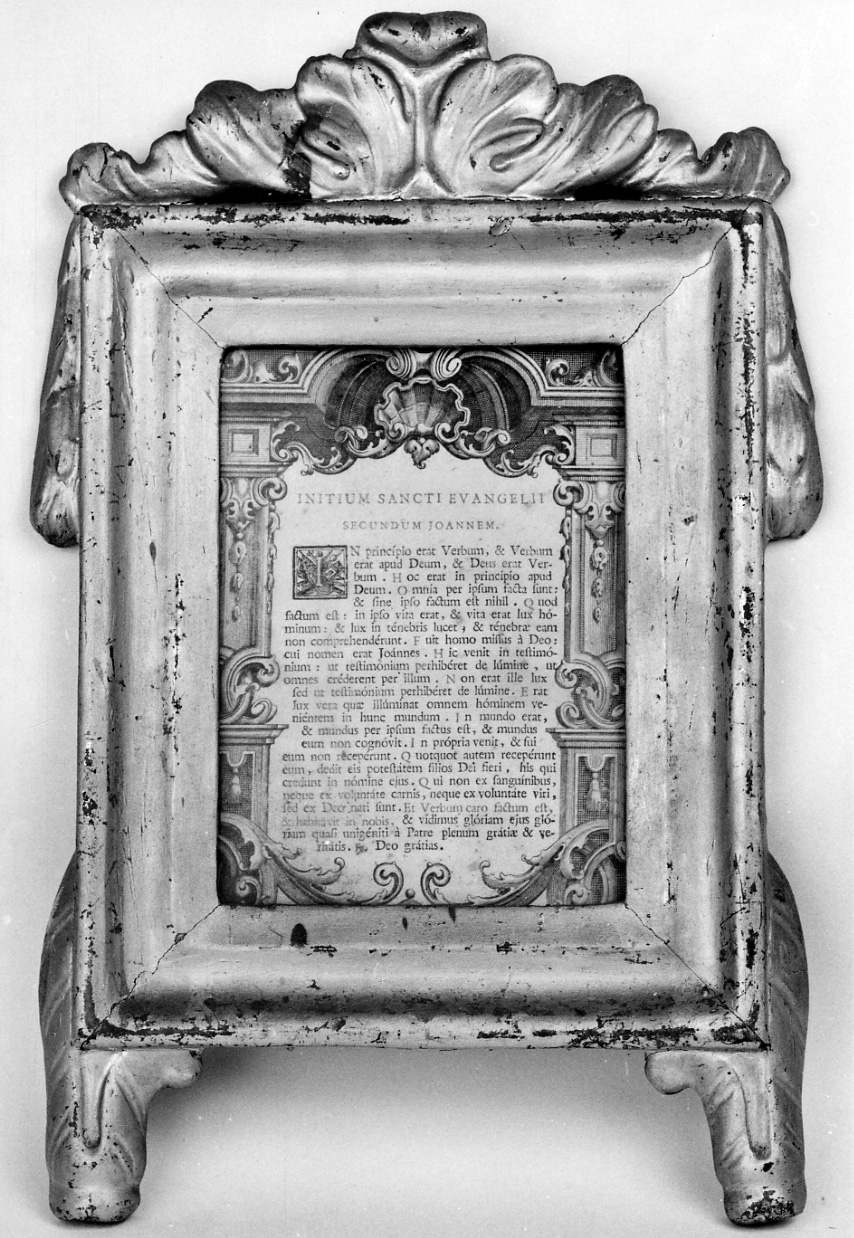 INITIUM SANCTI EVANGELII
SECUNDUM JOANNEM.
IN princípio erat Verbum, & Verbum
erat apud Deum, & Deus erat Ver-
bum. Hoc erat in princípio apud
Deum. Omnia per ipsum facta sunt:
& sine ipso factum est nihil. Quod
factum est: in ipso vita erat, & vita erat lux hó-
minum: & lux in ténebris lucet, & ténebræ eam
non comprehendérunt. Fuit homo missus à Deo:
cui nomen erat Joánnes. Hic venit in testimó-
nium: ut testimónium perhibéret de lúmine, ut
omnes créderent per illum. Non erat ille lux
sed ut testimónium perhibéret de lúmine. Erat
lux vera quæ illúminat omnem hóminem ve-
niéntem in hunc mundum. In mundo erat,
& mundus per ipsum factus est, & mundus
eum non cognóvit. In própria venit, & sui
eum non recepérunt. Quotquot autem recepérunt
eum, dedit eis potestátem fílios Dei fieri, his qui
credunt in nómine ejus. Qui non ex sanguínibus,
neque ex voluntáte carnis, neque ex voluntáte viri,
sed ex Deo nati sunt. Et Verbum caro factum est,
& habitávit in nobis, & vídimus glóriam ejus gló-
riam quasi unigéniti à Patre plenum grátiæ & ve-
ritátis. ℟. Deo grátias.